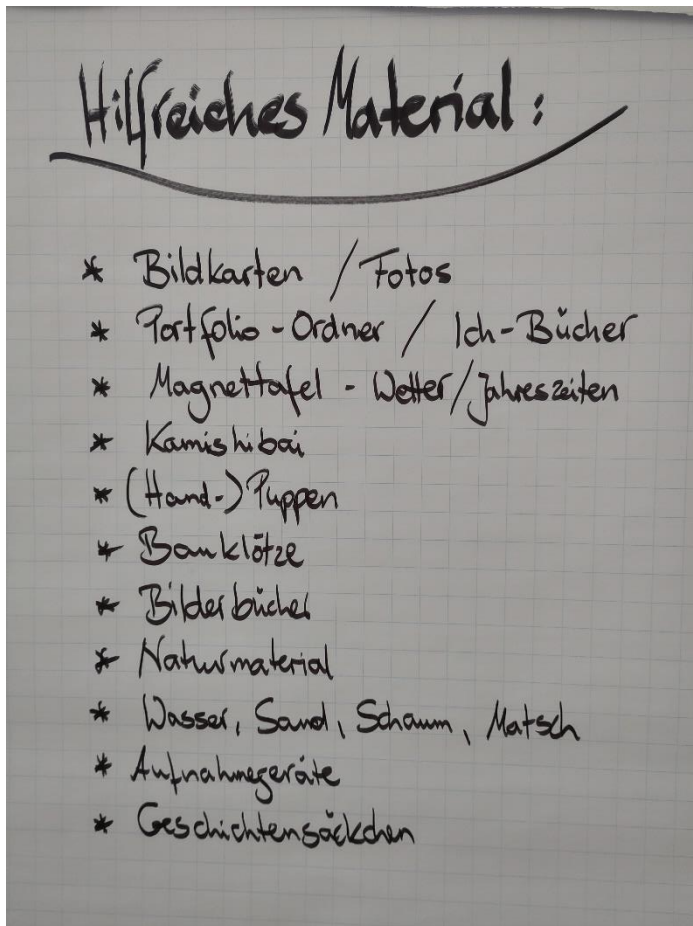 Hilfreiches Material:
* Bildkarten / Fotos
* Portfolio-Ordner / Ich-Bücher
* Magnettafel - Wetter/Jahreszeiten
* Kamishibai
* (Hand-) Puppen
* Bauklötze
* Bilderbücher
* Naturmaterial
* Wasser, Sand, Schaum, Matsch
* Aufnahmegeräte
* Geschichtensäckchen